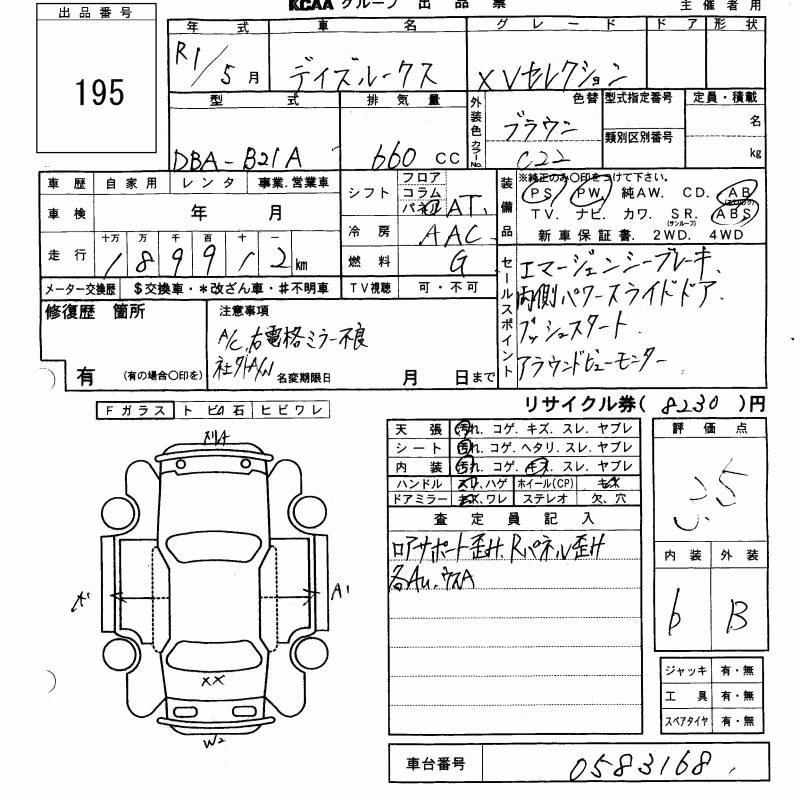 KCAA グループ 出品票 主催者用
出品番号
195
年式 車名 グレード ドア 形状
R1/5月 デイズルークス XVセレクション
型式 排気量 外装色 カラーNo. 色替 型式指定番号 定員・積載
DBA-B21A 660 CC ブラウン C22 類別区別番号 名 kg
車歴 自家用 レンタ 事業.営業車
車検 年 月
走行 十万 万 千 百 十 一
189912 km
メーター交換歴 $交換車・*改ざん車・#不明車
シフト フロア コラム パネル AT
冷房 AAC
燃料 G
TV視聴 可・不可
装備品 ※純正のみ○印をつけて下さい。
PS. PW. 純AW. CD. AB (エアバック)
TV. ナビ. カワ. SR. (サンルーフ) ABS
新車保証書. 2WD. 4WD
セールスポイント
エマージェンシーブレーキ.
内側パワースライドドア.
プッシュスタート.
アラウンドビューモニター
修復歴 箇所
有 (有の場合○印を)
注意事項
A/C.右電格ミラー不良
社外A/W
名変期限日 月 日まで
リサイクル券( 8230 )円
Fガラス トビ石 ヒビワレ
天張 汚れ. コゲ. キズ. スレ. ヤブレ
シート 汚れ. コゲ. ヘタリ. スレ. ヤブレ
内装 汚れ. コゲ. キズ. スレ. ヤブレ
ハンドル スレ.ハゲ ホイール(CP) キズ
ドアミラー キズ.ワレ ステレオ 欠.穴
査定員記入
ロアサポート歪ミ.Rパネル歪ミ
各AU.ウスA
評価点
3.5
内装 外装
6 B
ジャッキ 有・無
工具 有・無
スペアタイヤ 有・無
車台番号 0583168
A1
XX
W2